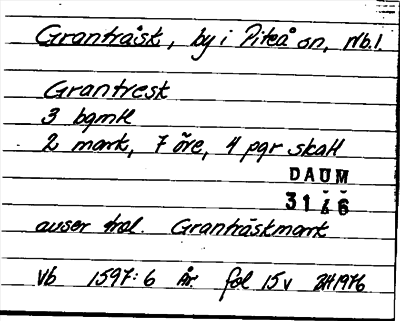 Granträsk, by i Piteå sn, Nb.l.
Grantresk
3 bgmtl
2 mark, 7 öre, 4 pgr skatt
DAUM
31 46
avser trol. Granträskmark
Vb 1597:6 År fol 15v 1976